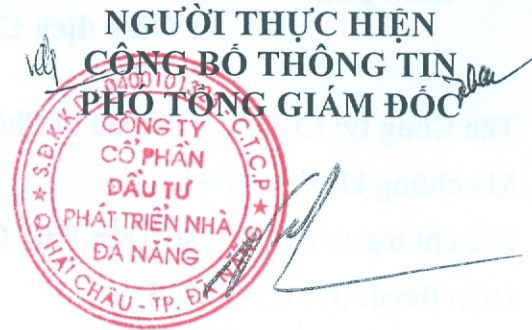 NGƯỜI THỰC HIỆN
CÔNG BỐ THÔNG TIN
PHÓ TỔNG GIÁM ĐỐC
CÔNG TY
CỔ PHẦN
ĐẦU TƯ
PHÁT TRIỂN NHÀ
ĐÀ NẴNG
Q. HẢI CHÂU - TP. ĐÀ NẴNG